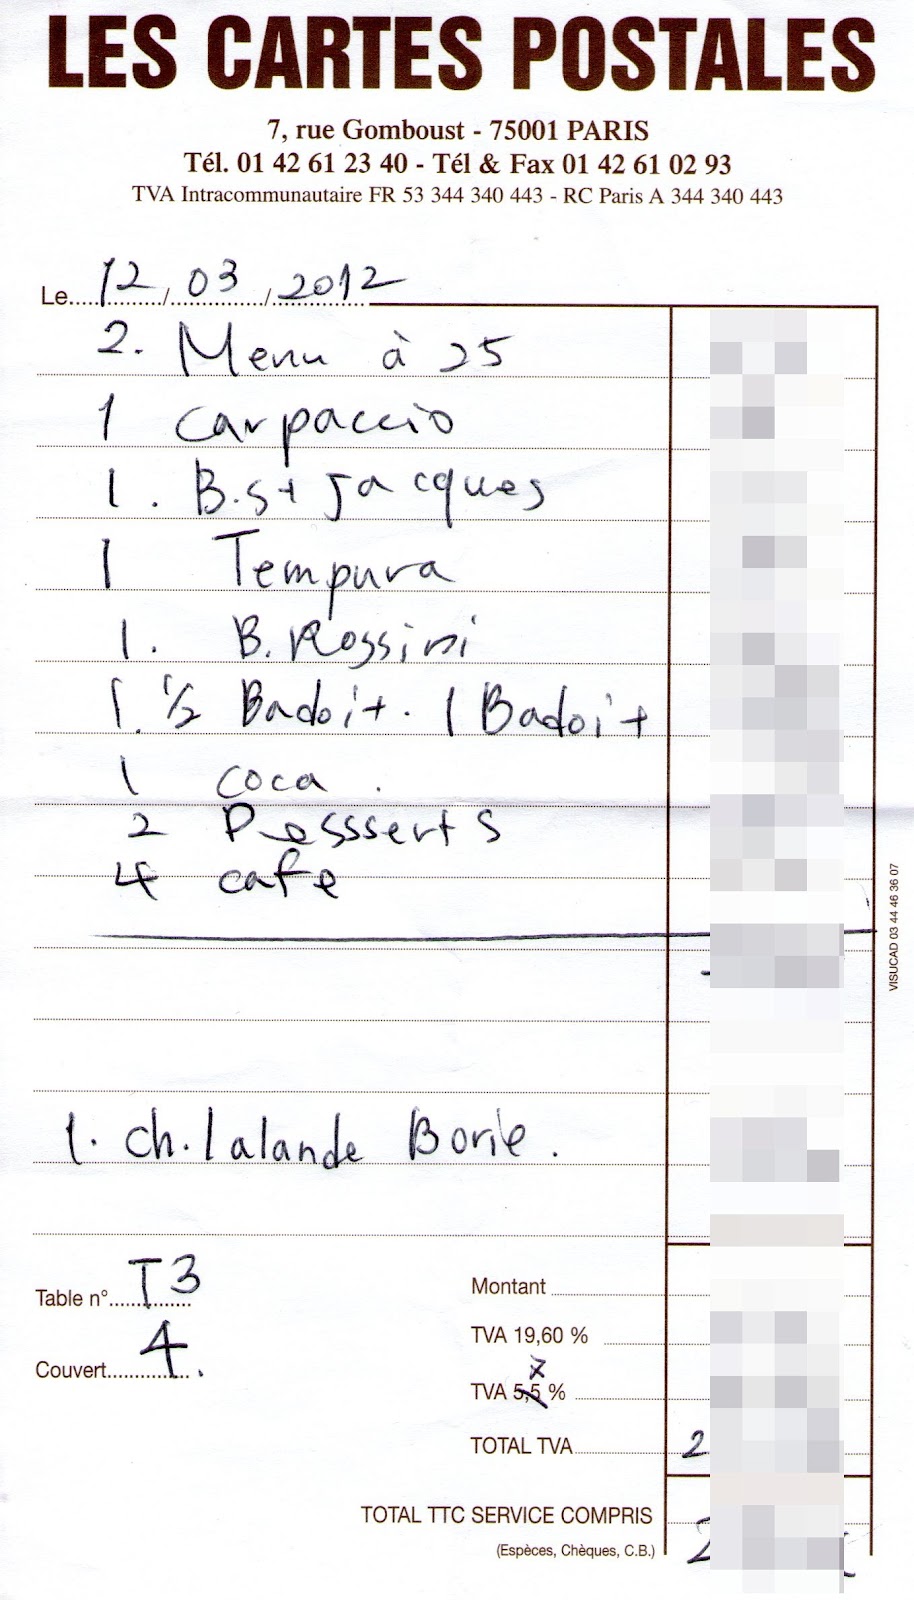 LES CARTES POSTALES
7, rue Gomboust - 75001 PARIS
Tél. 01 42 61 23 40 - Tél & Fax 01 42 61 02 93
TVA Intracommunautaire FR 53 344 340 443 - RC Paris A 344 340 443
Le....12../..03../..2012
2. Menu à 25
1 carpaccio
1. B.St Jacques
1 Tempura
1. B. Rossini
1. 1/2 Badoit. 1 Badoit
1 coca.
2 Dessserts
4 cafe
VISUCAD 03 44 46 36 07
1. ch. lalande Borie.
Table n° T3
Couvert 4.
Montant
TVA 19,60 %
TVA 5,5 % 7
TOTAL TVA 2
TOTAL TTC SERVICE COMPRIS 2
(Espèces, Chèques, C.B.)